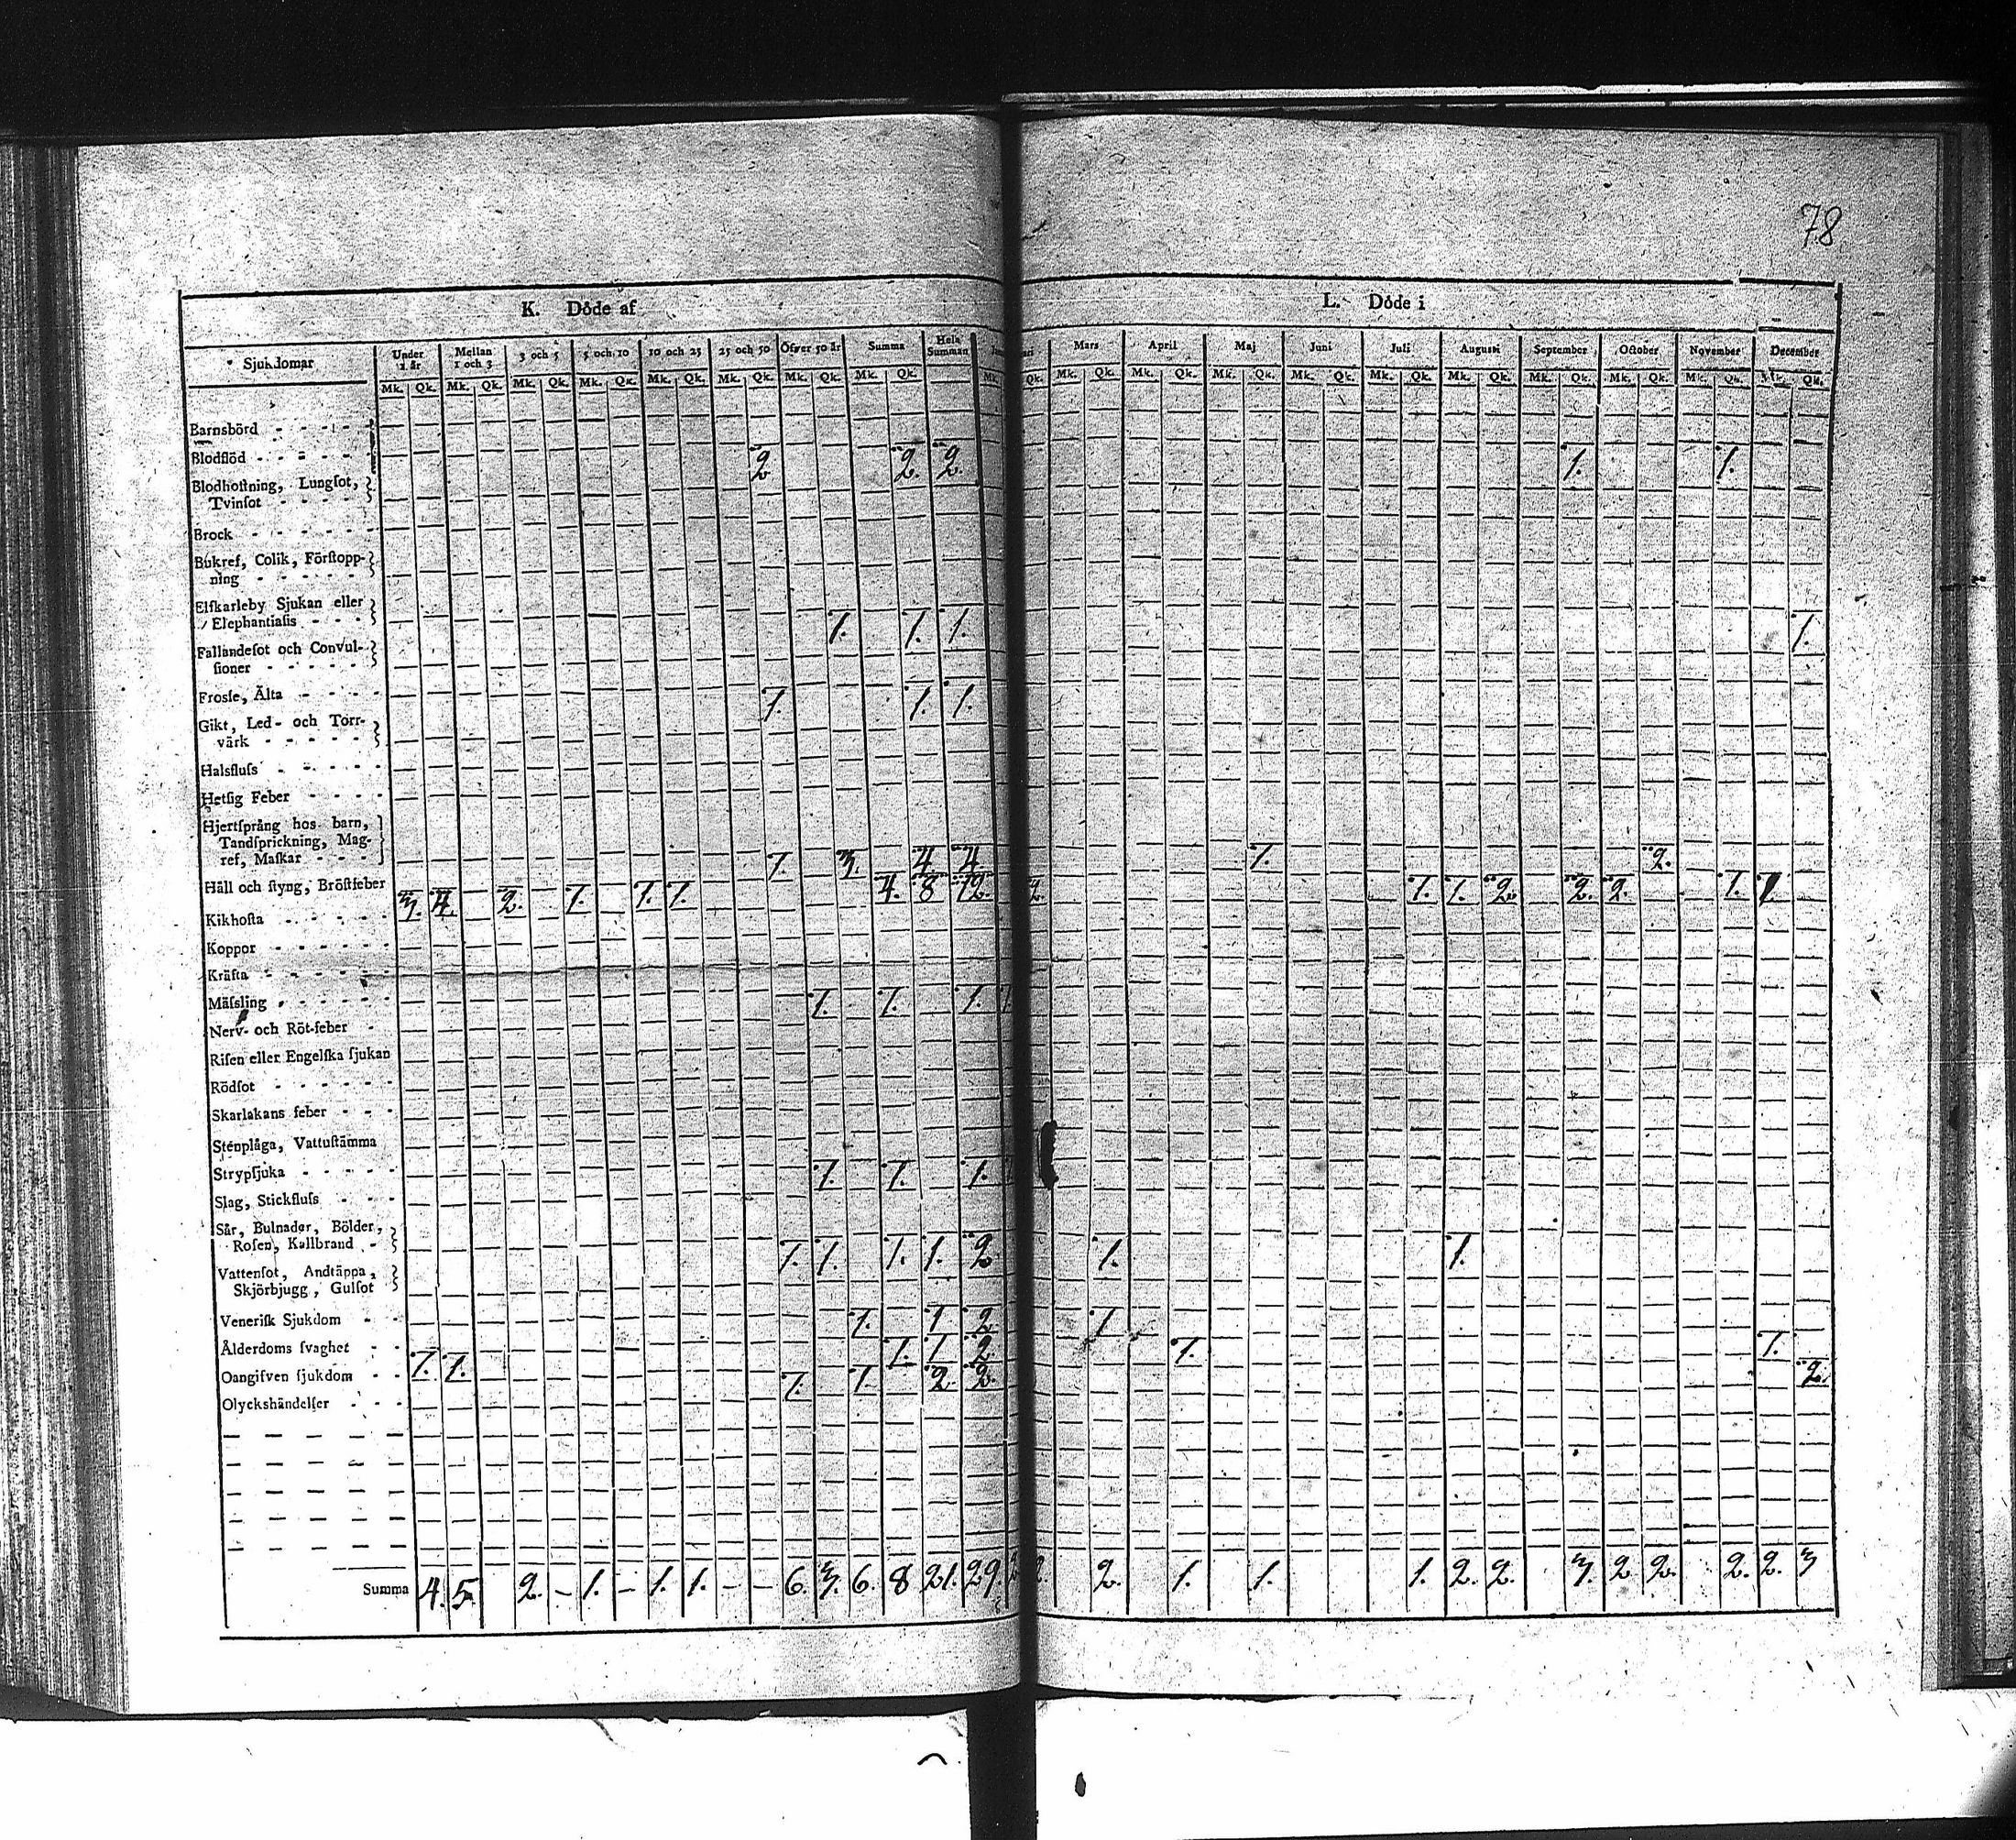 78
K. Döde af
L. Döde i
Sjukdomar Under 1 år Mellan 1 och 3 3 och 5 5 och 10 10 och 25 25 och 50 Öfver 50 år Summa Hela Summan Mars April Maj Juni Juli Augusti September October November December
Mk. Qk. Mk. Qk. Mk. Qk. Mk. Qk. Mk. Qk. Mk. Qk. Mk. Qk. Mk. Qk. Mk. Qk. Mk. Qk. Mk. Qk. Mk. Qk. Mk. Qk. Mk. Qk. Mk. Qk. Mk. Qk. Mk. Qk. Mk. Qk. Mk. Qk. Mk. Qk.
Barnsbörd
Blodflöd 2 2. 2. 1. 1.
Blodhoſtning, Lungſot,
Tvinſot
Brock
Bukref, Colik, Förſtopp-
ning
Elfkarleby Sjukan eller
Elephantiaſis 1. 1. 1. 1.
Fallandeſot och Convul-
ſioner
Frosſe, Älta 1. 1. 1.
Gikt, Led- och Torr-
värk
Halsfluſs
Hetſig Feber
Hjertſprång hos barn,
Tandſprickning, Mag-
ref, Maſkar 1. 3. 4 4 1. 2.
Håll och ſtyng, Bröſtfeber 3. 4. 2. 1. 1. 1. 4. 8 12. 2. 1. 1. 2. 2. 2. 1. 1.
Kikhoſta
Koppor
Kräfta
Mäſsling 1. 1. 1.
Nerv- och Röt-feber
Riſen eller Engelſka ſjukan
Rödſot
Skarlakans feber
Stenplåga, Vattuſtämma
Strypſjuka 1. 1. 1.
Slag, Stickfluſs
Sår, Bulnader, Bölder,
Roſen, Kallbrand 1. 1. 1. 1. 2 1. 1.
Vattenſot, Andtäppa,
Skjörbjugg, Gulſot
Veneriſk Sjukdom 1. 1 2. 1.
Ålderdoms ſvaghet 1. 1. 1. 1 2. 1. 1.
Oangifven ſjukdom 1. 1. 2. 2. 2.
Olyckshändelſer
Summa 4. 5. 2. – 1. – 1. 1. – – 6. 3. 6. 8 21. 29. 2. 1. 1. 1. 2. 2. 3. 2 2. 2. 2. 3